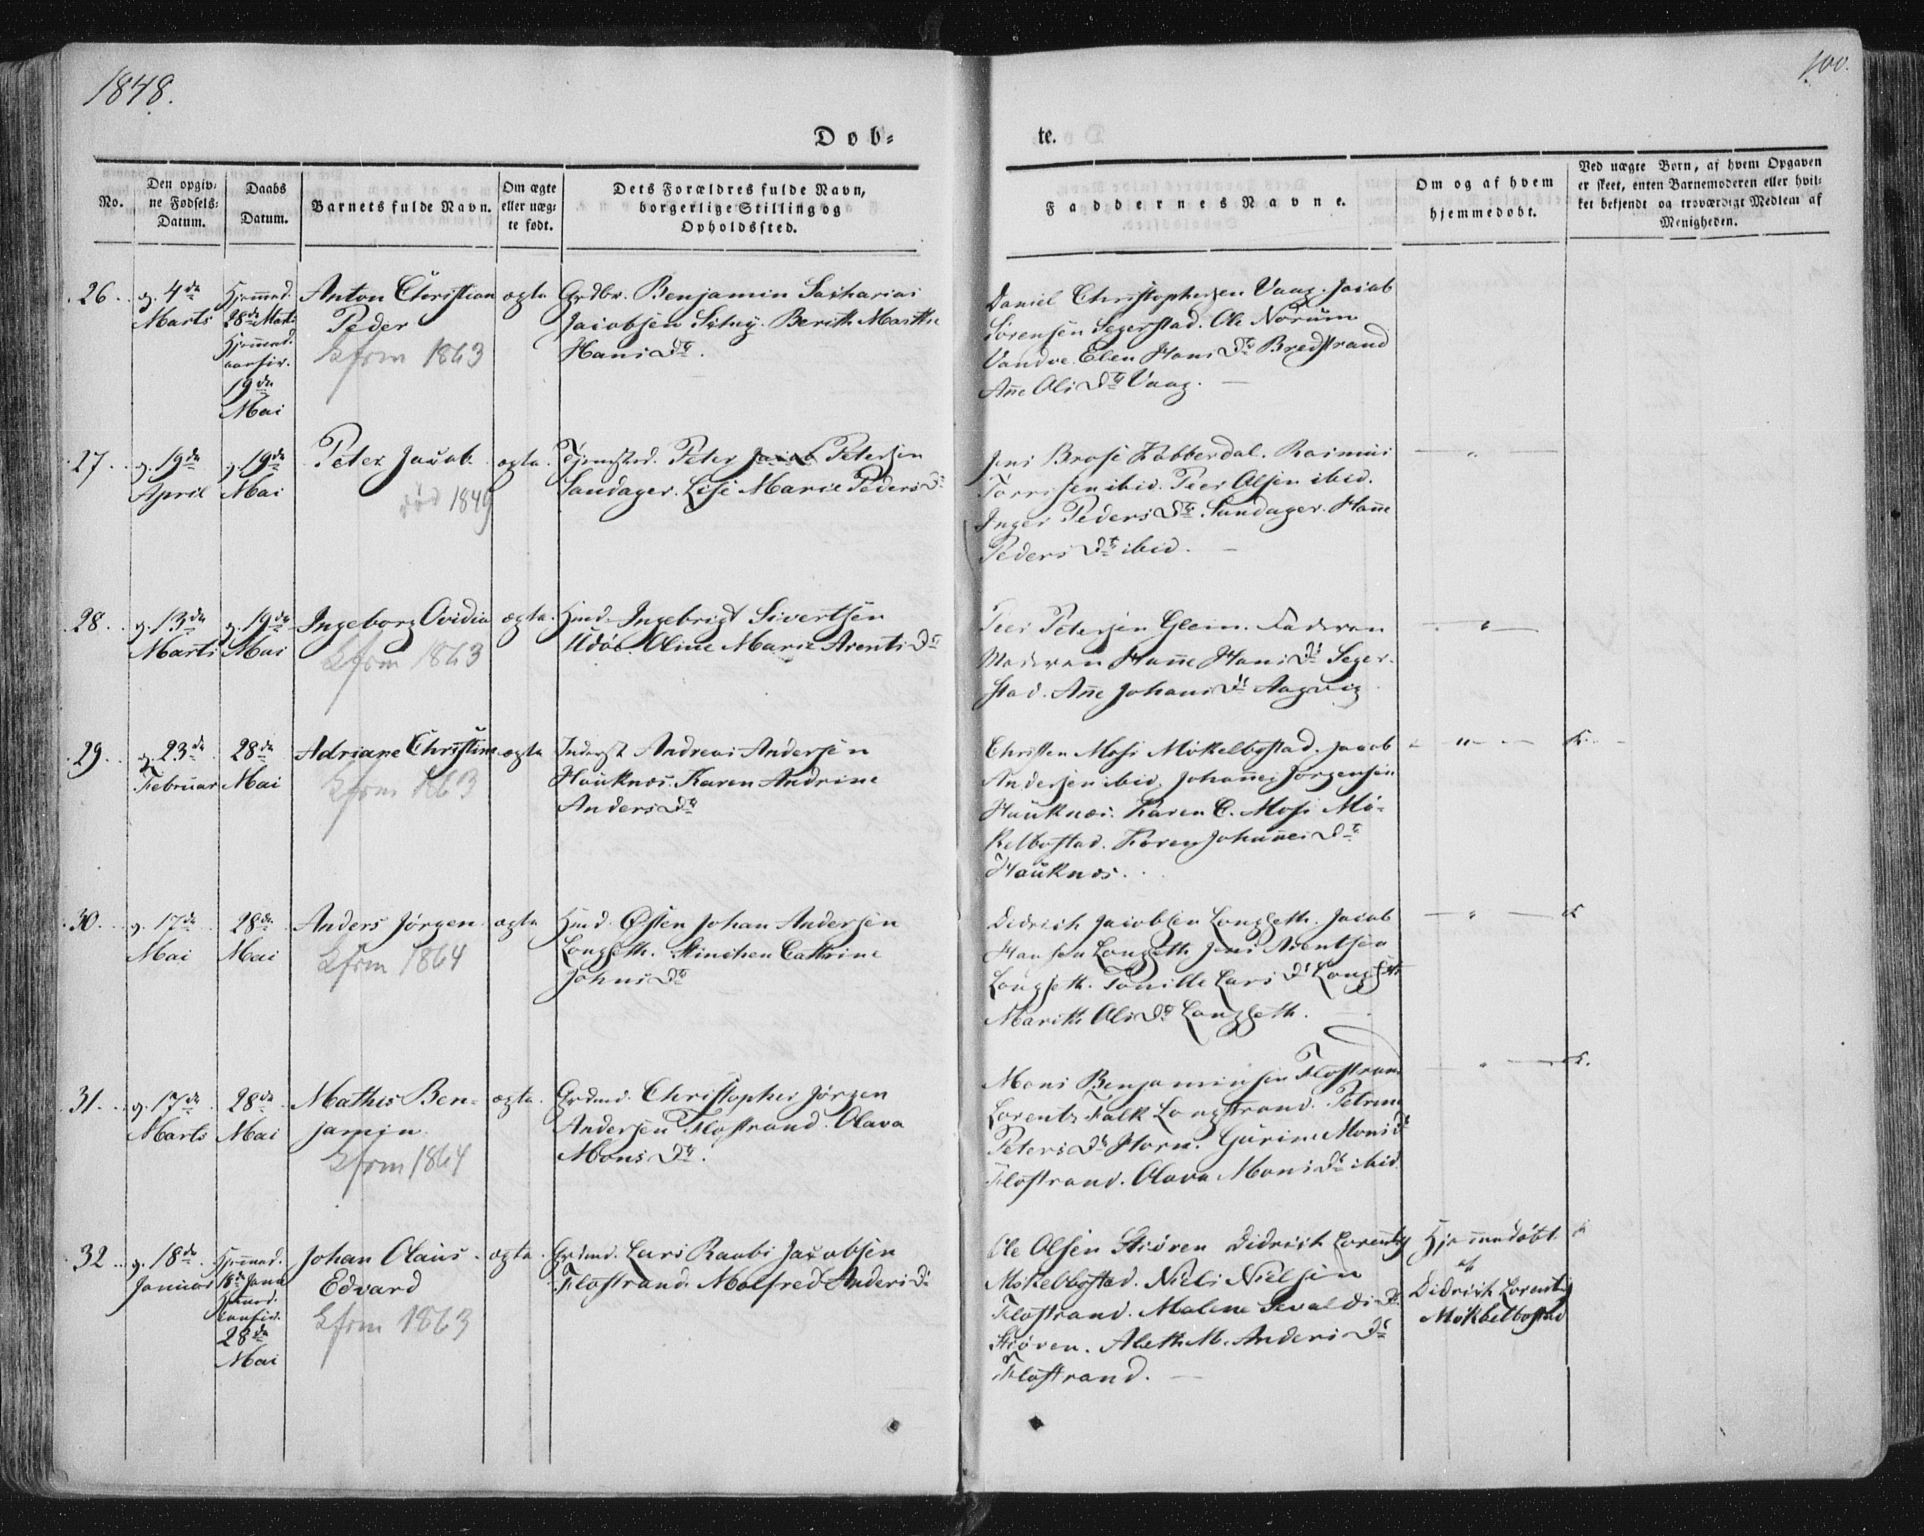 1848.
100.
Døb-
te.
No.
Den opgiv-
ne Fødsels-
Datum.
Daabs
Datum.
Barnets fulde Navn.
Om ægte
eller uæg-
te født.
Dets Forældres fulde Navn,
borgerlige Stilling og
Opholdssted.
Faddernes Navne.
Om og af hvem
hjemmedøbt.
Ved uægte Børn, af hvem Opgaven
er skeet, enten Barnemoderen eller hvil-
ket bekjendt og troværdigt Medlem af
Menigheden.
26.
4de
Marts
Hjemmed.
28de Marts
Hjemmed.
confir.
19de
Mai
Anton Christian
Peder
Kfrm 1863
ægte
Grdbr. Benjamin Sacharias
Jacobsen Berith Marthe
Hans Dtr.
Daniel Christophersen Vaag. Jacob
Sørensen Segerstad. Ole Norum
Vandve. Elen Hans Dtr Bredstrand
Ane Ols Dtr Vaag.
27.
19de
April
19de
Mai
Peter Jacob
død 1849
ægte.
Tjenested. Peter Jacob Petersen
Sandager. Lise Marie Peders Dr
Jens Brose Kobberdal. Rasmus
Torrisen ibid. Peer Olsen ibid.
Inger Peders Dtr Sandager. Hanne
Peders Dt ibid.
28.
13de
Marts
19de
Mai
Ingeborg Ovidia
Kfrm 1863
ægte.
Hmd. Ingebrigt Sivertsen
Oline Marie Arents Dtr
Peer Petersen Glein. Faderen
Moderen Hanne Hans Dt Seger-
stad. Ane Johans Dt Aagvig
29.
23de
Februar
28de
Mai
Adriane Christine
Kfrm 1863
ægte
Inderst Andreas Andersen
Hauknæs. Karen Andrine
Anders Dtr
Christen Mosi Mökelbostad. Jacob
Andersen ibid. Johannes Jørgensen
Hauknæs. Karen C. Mosi Mö-
kelbostad. Karen Johannes Dtr
Hauknæs.
30.
17de
Mai
28de
Mai
Anders Jørgen
Kfrm 1864
ægte
Hmd. Østen Johan Andersen
Langseth. Stinchen Cathrine
Johns Dtr
Didrich Jacobsen Langseth. Jacob
Hansen Langseth Jens Arentsen
Langseth. Tonille Lars Dt Langseth
Marith Ols Dtr Langseth.
31.
17de
Marts
28de
Mai
Mathis Ben-
jamin
Kfrm 1864
ægte.
Grdmd. Christopher Jørgen
Andersen Flostrand. Olava
Mons Dtr.
Mons Benjaminsen Flostrand
Lorents Falk Langstrand. Petrine
Peters Dt Horn. Gurine Mons Dt
Flostrand. Olava Mons Dt ibid.
32.
18de
Januar
Hjemmed.
18de Janu
Hjemmed.
confir.
28de
Mai
Johan Olaus
Edvard
Kfrm 1863
ægte.
Grdmd. Lars Raabi Jacobsen
Flostrand. Malfred Anders Dt
Ole Olsen Stiøren Didrich Lorentz
Mökelbostad. Niels Nielsen
Flostrand. Malene Sevalds Dt
Stiøren. Aleth M. Anders Dt
Flostrand.
Hjemmedøbt
af
Didrich Lorentz
Mökkelbostad